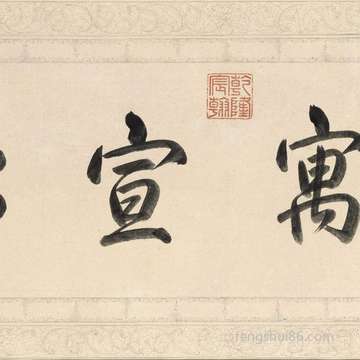 乾隆宸翰
寓宣
fengshui86.com